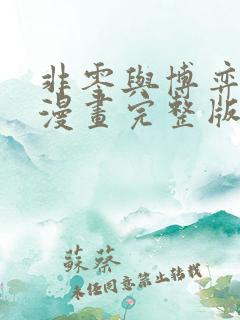 非零與博弈
漫畫完整版
蘇蔡
未經同意禁止轉載